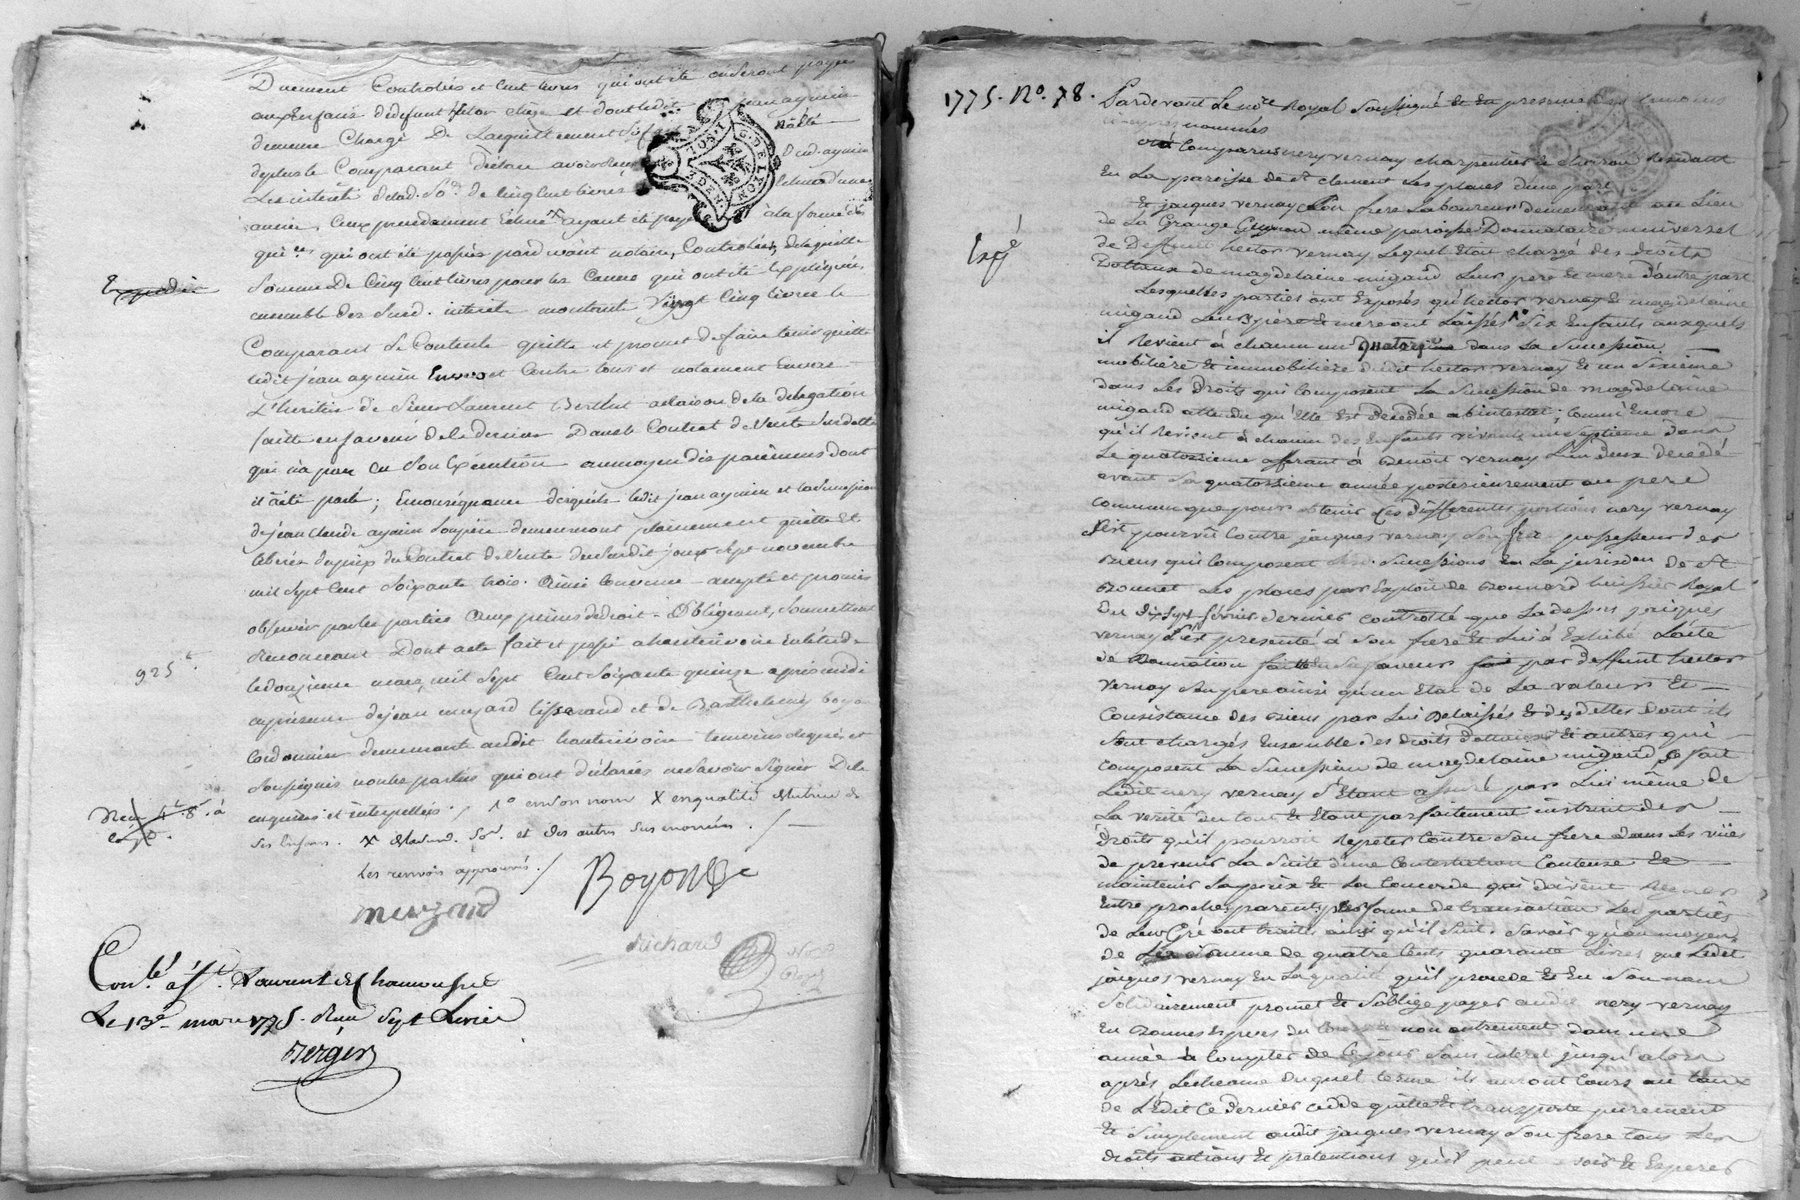 Duement Controlés et cent livres qui ont été ou seront payés
aux enfans de défunt et dont ledit jean aymin
demeure Chargé De Lacquittement
de plus le Comparant déclare avoir
Les intérêts de lad. So.e de cinq Cent livres
année
qui ont été passés pard.vant notaire, Controlées, de laquelle
Expédiée
Somme De Cinq Cent livres pour les Causes qui ont été Expliquées
ensemble des Susd. interets montants Vingt Cinq livres le
Comparant Se Contente quitte et promet de faire tenir quitte
ledit jean aymin Envers et Contre tous et notament Envers
L'heritier de Sieur Laurent Berthet a raison de la délégation
faitte en faveur de Ce dernier Dans le Contrat de Vente Susdatté
qui n'a pas eu Son Exécution au moyen des paiemens dont
il a été parlé; En conséquence desquels ledit jean aymin et la Succession
de jean Claude aymin Son père demeureront plainement quitte et
liberés du prix du Contrat de Vente du Susdit jour Sept novembre
mil Sept Cent Soixante trois. Ainsi Convenu accepté et promis
observer par les parties aux peines de droit - Obligeant, Soumettant
Renonçant Dont acte fait et passé a hauterivoire En l'étude
925tt
le douzieme mars mil Sept Cent Soixante quinze après midi
en présence de jean muzard tisserand et de Barthelemy boyon
Cordonnier demeurant audit hauterivoire temoins requis et
Soussignés non les parties qui ont déclarées ne Savoir Signer De ce
enquises et interpellées. / 1º en son nom X en qualité de tutrice de
Ses Enfans. X de lad. So.e et des autres Sus nommées. /
Les renvois approuvés. /
Boyon
muzard
Richard
Con.lé à S.t Laurent de Chamousset
Le 13e mars 1775. Reçu Sept Livres
Berger
1775. No. 78.
Pardevant Le no.re Royal Soussigné Et En presence des temoins
cy après nommés
Est Comparu nery vernay charpentier à chiron Residant
En La paroisse de St clement Les places D'une part
Expé
Et jacques vernay Son frere Laboureur demeurant au Lieu
de La Grange Gunnon même paroisse Donnataire universel
de Deffunt hector vernay Lequel Etoit chargé des droits
Dottaux de magdelaine migaud Leur pere Et mere D'autre part
Lesquelles parties ont Exposés qu'hector vernay Et magdelaine
migaud Leurs père Et mere ont Laissés Six Enfants auxquels
il Revient à chacun un quatorzie dans La Succession
mobiliére Et immobiliére dudit hector vernay Et un Sixieme
dans Les Droits qui composent La Succession de magdelaine
migaud attendu qu'Elle Est decedée abintestat; comme Encore
qu'il Revient à chacun des Enfants vivants un Septieme dans
Le quatorzieme afferant à Benoit vernay L'un deux decedé
avant Sa quatorzieme année posterieurement au pere
commun que pour obtenir Ces differentes portions nery vernay
S'est pourvû Contre jacques vernay Son frere possesseur des
Biens qui Composent Succession En La jurisdon de St
Bonnet Les places par Exploit de Bonnard huissier Royal
Du dix Sept fevrier dernier controllé que La dessus jacques
vernay S'est presenté à Son frere Et Lui a Exhibé L'acte
de Donnation faitte En Sa faveur par deffunt hector
vernay Son pere ainsi qu'un Etat de La valeur Et
Consistance des Biens par Lui Delaissés Et des dettes Dont ils
Sont chargés Ensemble des Droits Dottaux Et autres qui
composent La Succession de magdelaine migaud, Ce fait
Ledit nery vernay S'Etant assuré par Lui même de
La verité du tout Et Etant parfaitement instruit des
Droits qu'il pourroit Repeter Contre Son frere Dans Les vües
de prevenir La Suitte d'une Contestation Couteuse Et
maintenir La paix Et La Concorde qui doivent Regner
Entre proches parents, par forme de transaction Les parties
de Leur Gré ont traités ainsi qu'il Suit. Savoir qu'au moyen
de La Somme de quatre Cents quarante Livres que Ledit
jacques vernay En La qualité qu'il procede Et En Son nom
Solidairement promet Et S'oblige payer audit nery vernay
En Bonnes Especes du Cours non autrement dans une
année à Compter de Ce jour Sans interet jusqu'alors
après L'echeance duquel terme ils auront Cours au taux
de L'Edit Ce dernier cedde quitte Et transporte purement
Et Simplement audit jacques vernay Son frere tous Les
Droits actions Et pretentions qu'il peut avoir Et Esperer